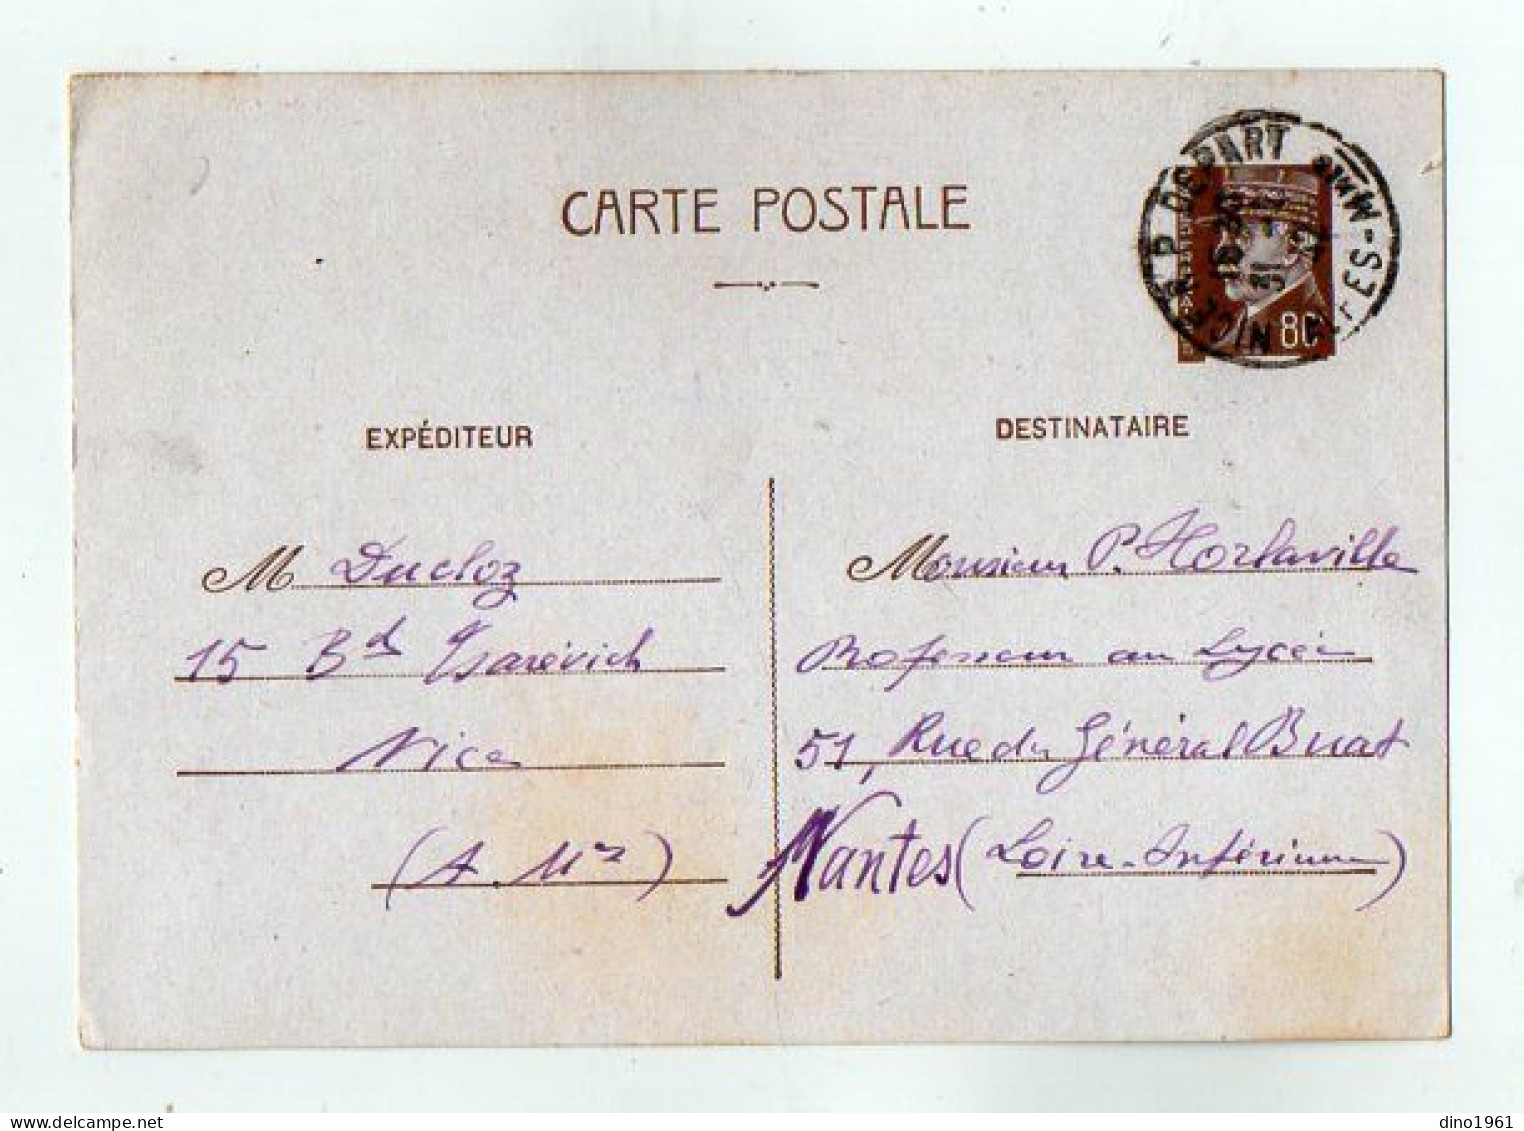 CARTE POSTALE
NICE R.P. DEPART ALPES-MMES
18 30
31
80
EXPÉDITEUR
DESTINATAIRE
M Ducloz
15 Bd Tsarévich
Nice
(A. Mes)
Monsieur P. Hortaville
Professeur au Lycée
51, Rue du Général Buat
Nantes (Loire-Inférieure)
dino1961